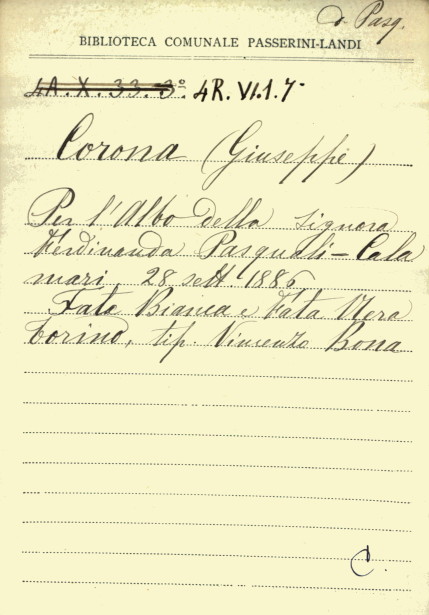 d. Pasq.
BIBLIOTECA COMUNALE PASSERINI-LANDI
4A. X. 33. 3º. 4R. VI.1.7
Corona (Giuseppe)
Per l'Albo della Signora
Ferdinanda Pasquali - Cala
mari, 28 sett. 1886
Fata Bianca e Fata Nera
Torino, tip. Vincenzo Bona
C.